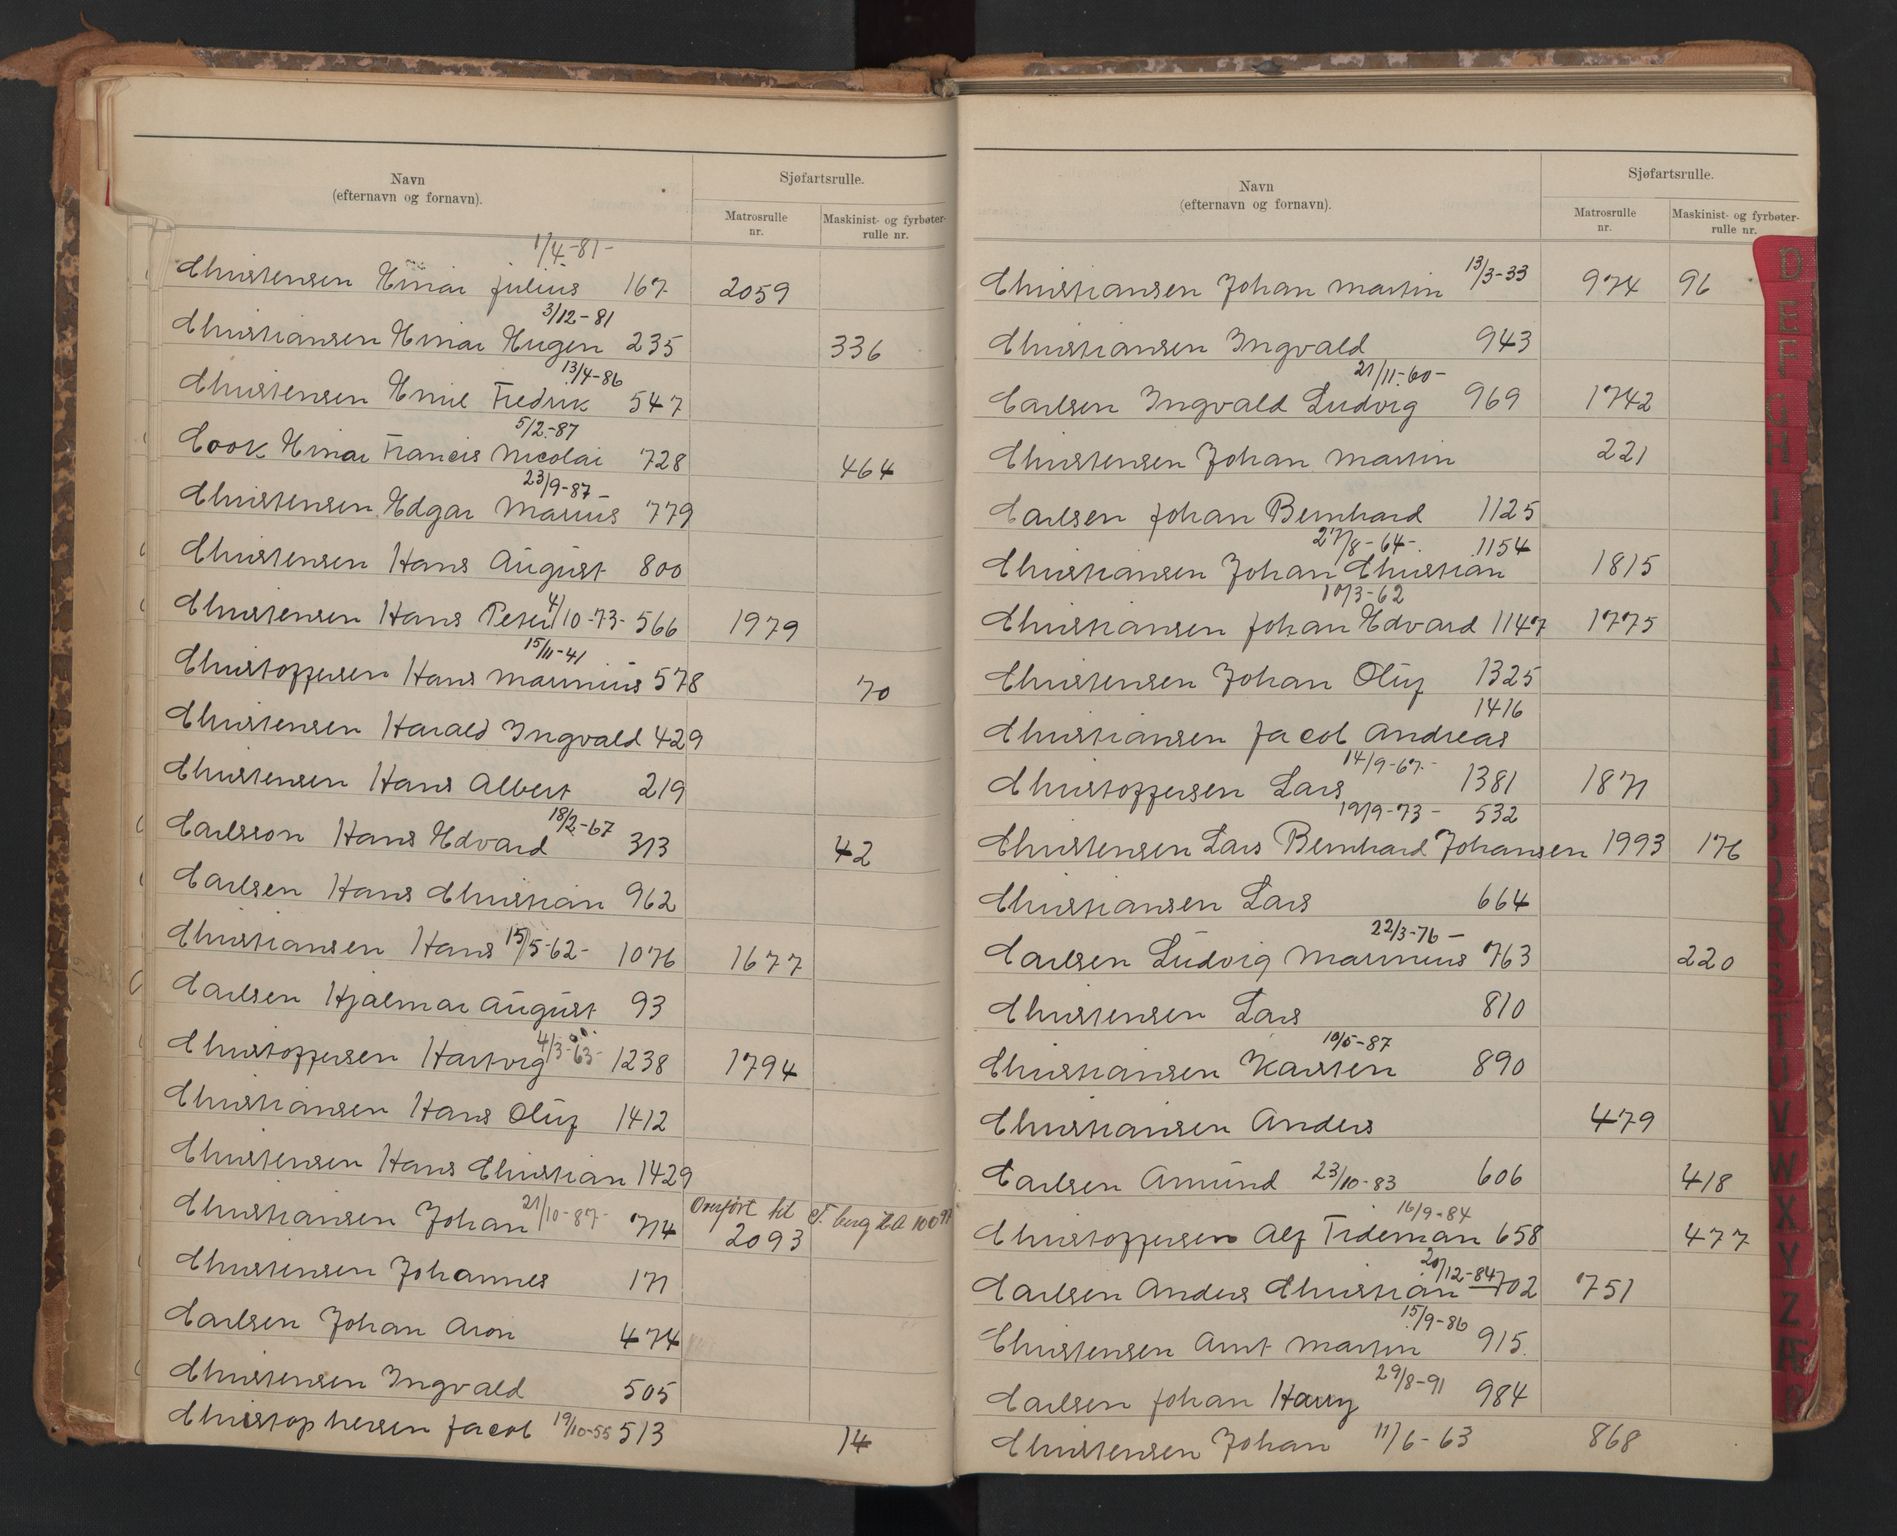 Navn
(efternavn og fornavn).
Sjøfartsrulle.
Matrosrulle nr.
Maskinist- og fyrbøter-rulle nr.
1/4-81-
Christensen Einar Julius 167 2059
3/12-81
Christiansen Einar Eugen 235 336
13/4-86
Christensen Emil Fredrik 547
5/2-87
Cook Einar Francis Nicolai 728 464
23/9-87-
Christensen Edgar Marius 779
Christensen Hans August 800
Christensen Hans Peter 4/10-73- 566 1979
15/11-41
Christoffersen Hans Marinius 578 70
Christensen Harald Ingvald 429
Christensen Hans Albert 219
18/2-67
Carlsson Hans Edvard 313 42
Carlsen Hans Christian 962
Christiansen Hans 15/5-62- 1076 1677
Carlsen Hjalmar August 93
4/3-63-
Christoffersen Hartvig 1238 1794
Christiansen Hans Oluf 1412
Christensen Hans Christian 1429
Overført til
Christiansen Johan 21/10-87- 714 2093
Christensen Johannes 171
Carlsen Johan Aron 474
Christensen Ingvald 505
Christophersen Jacob 19/10-55 513 14
Navn
(efternavn og fornavn).
Sjøfartsrulle.
Matrosrulle nr.
Maskinist- og fyrbøter-rulle nr.
Christiansen Johan Martin 13/3-33 974 96
Christiansen Ingvald 943
21/11-60-
Carlsen Ingvald Ludvig 969 1742
Christensen Johan Martin 221
Carlsen Johan Bernhard 1125
27/8-64-. 1154
Christiansen Johan Christian 1815
10/3-62
Christiansen Johan Edvard 1147 1775
Christensen Johan Oluf 1325
1416
Christiansen Jacob Andreas
14/9-67-
Christoffersen Lars 1381 1871
19/9-73- 532
Christensen Lars Bernhard Johansen 1993 176
Christiansen Lars 664
22/3-76-
Carlsen Ludvig Marinius 763 220
Christensen Lars 810
19/5-87
Christiansen Karsten 890
Christiansen Anders 479
Carlsen Amund 23/10-83 606 418
16/9-84
Christoffersen Alf Tideman 658 477
20/12-84
Carlsen Anders Christian 702 751
15/9-86
Christensen Arnt Martin 915.
29/8-91
Carlsen Johan Harry 984
Christensen Johan 11/6-63 868
D
E
F
G
H
I
J
Q
R
S
T
U
V
W
X
Y
Z
Æ
Ø